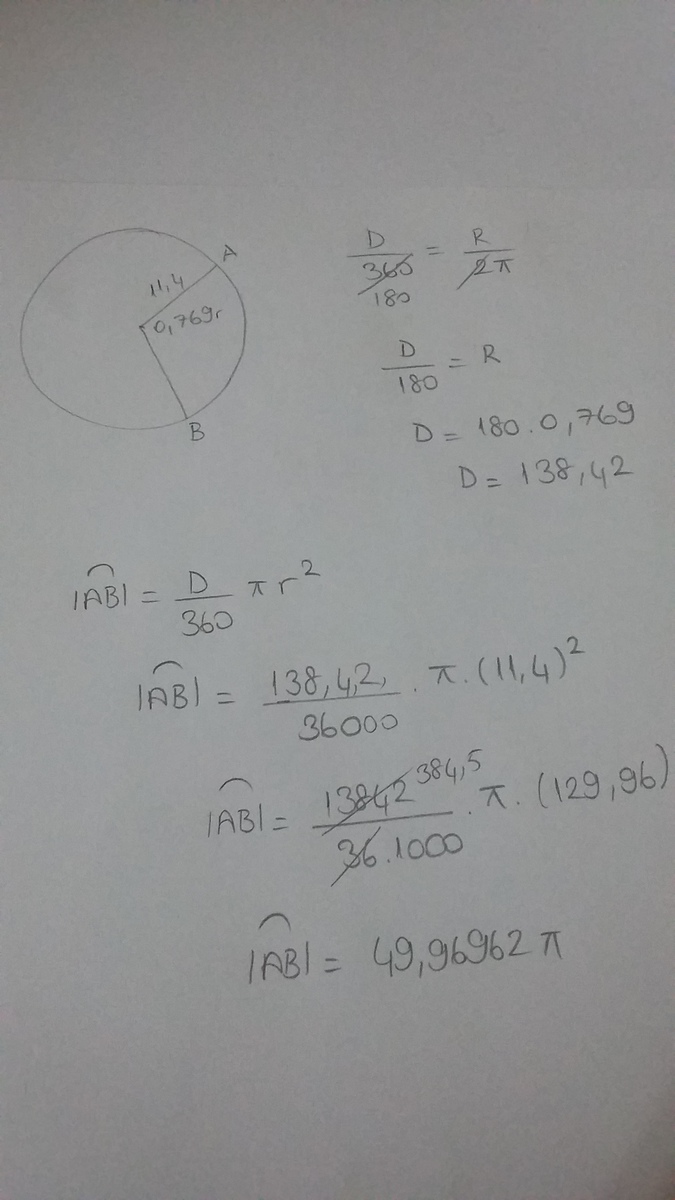 A
11,4
0,769r
B
D/360 = R/2π
180
D/180 = R
D = 180.0,769
D = 138,42
|AB| = D/360 π r²
|AB| = 138,42/36000 . π.(11,4)²
|AB| = 13842/36.1000 384,5 . π.(129,96)
|AB| = 49,96962 π